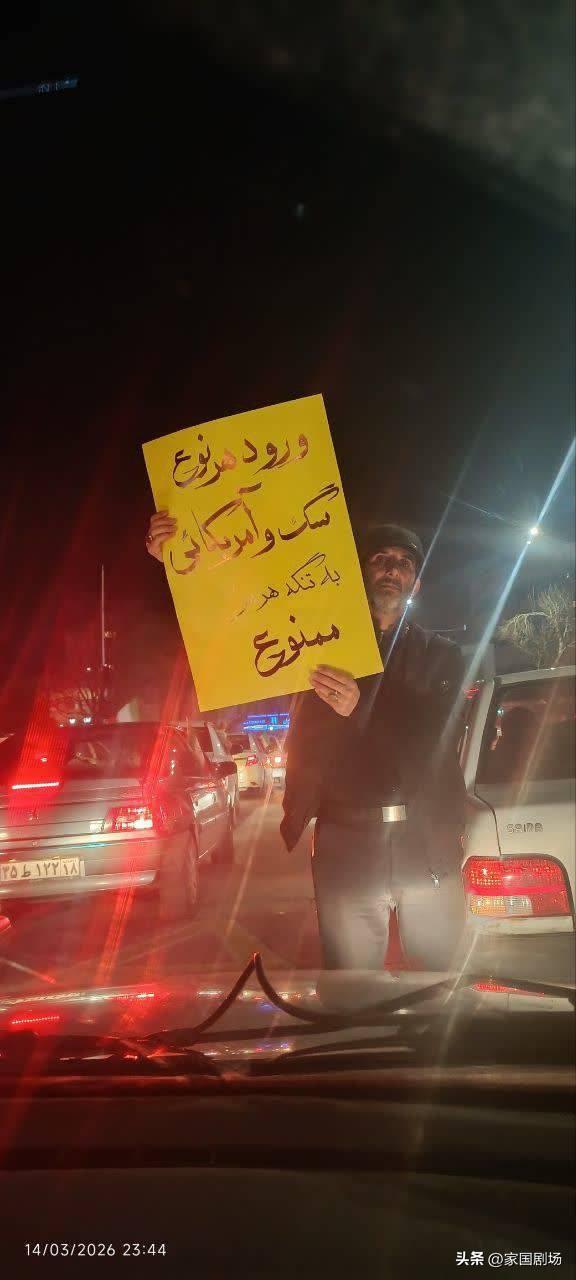 ورود هر نوع
سگ و آمریکائی
به تنگه هرمز
ممنوع
۳۵ ط ۱۲۲ ۱۸
SAINA
14/03/2026 23:44
头条 @家国剧场